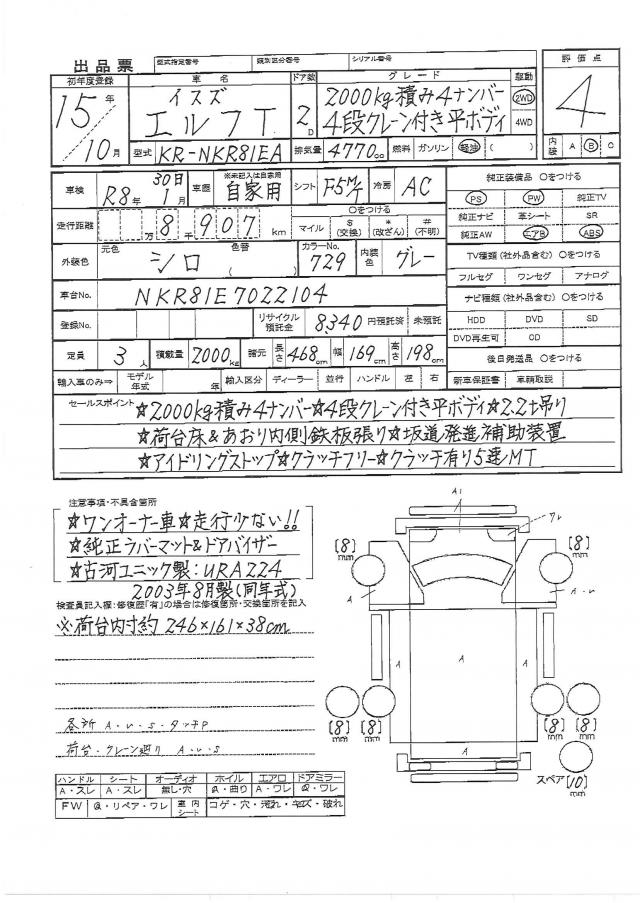 出品票
型式指定番号 類別区分番号 シリアル番号
初年度登録 車名 ドア数 グレード 駆動 評価点
15年 イスズ エルフT 2D 2000kg積み4ナンバー 4段クレーン付き平ボディ 2WD 4WD 4
10月 型式 KR-NKR81EA 排気量 4770cc 燃料 ガソリン 軽油 ( ) 内装 A B C
車検 R8年 30日 1月 車歴 ※未記入は自家用 自家用 シフト F5M/T 冷房 AC 純正装備品 〇をつける
PS PW 純正TV
走行距離 万 8千 907 km 〇をつける マイル S (交換) * (改ざん) # (不明) 純正ナビ 革シート SR
純正AW エアB ABS
外装色 元色 シロ 色替 ( ) カラーNo. 729 内装色 グレー TV種類(社外品含む) 〇をつける
フルセグ ワンセグ アナログ
車台No. NKR81E7022104 ナビ種類(社外品含む) 〇をつける
登録No. リサイクル預託金 8340 円預託済 未預託 HDD DVD SD
DVD再生可 CD
定員 3人 積載量 2000kg 諸元 長さ 468cm 幅 169cm 高さ 198cm 後日発送品 〇をつける
輸入車のみ⇒ モデル年式 年 輸入区分 ディーラー 並行 ハンドル 左 右 新車保証書 車輌取説
セールスポイント
☆2000kg積み4ナンバー☆4段クレーン付き平ボディ☆2.2t吊り
☆荷台床&あおり内側鉄板張り☆坂道発進補助装置
☆アイドリングストップ☆クラッチフリー☆クラッチ有り5速MT
注意事項・不具合箇所
☆ワンオーナー車☆走行少ない!!
☆純正ラバーマット&ドアバイザー
☆古河ユニック製:URA224
2003年8月製(同年式)
検査員記入欄:修復歴「有」の場合は修復箇所・交換箇所を記入
※荷台内寸約 246×161×38cm
各所 A・U・S・タッチP
荷台・クレーン廻り A・U・S
A1
ワレ
[8]mm
[8]mm
A
A・U
A
A
A
[8]mm
[8]mm
[8]mm
[8]mm
A
スペア [10]mm
ハンドル シート オーディオ ホイル エアロ ドアミラー
A・スレ A・スレ 無し・穴 G・曲り A・ワレ G・ワレ
FW G・リペア・ワレ 車内シート コゲ・穴・汚れ・キズ・破れ